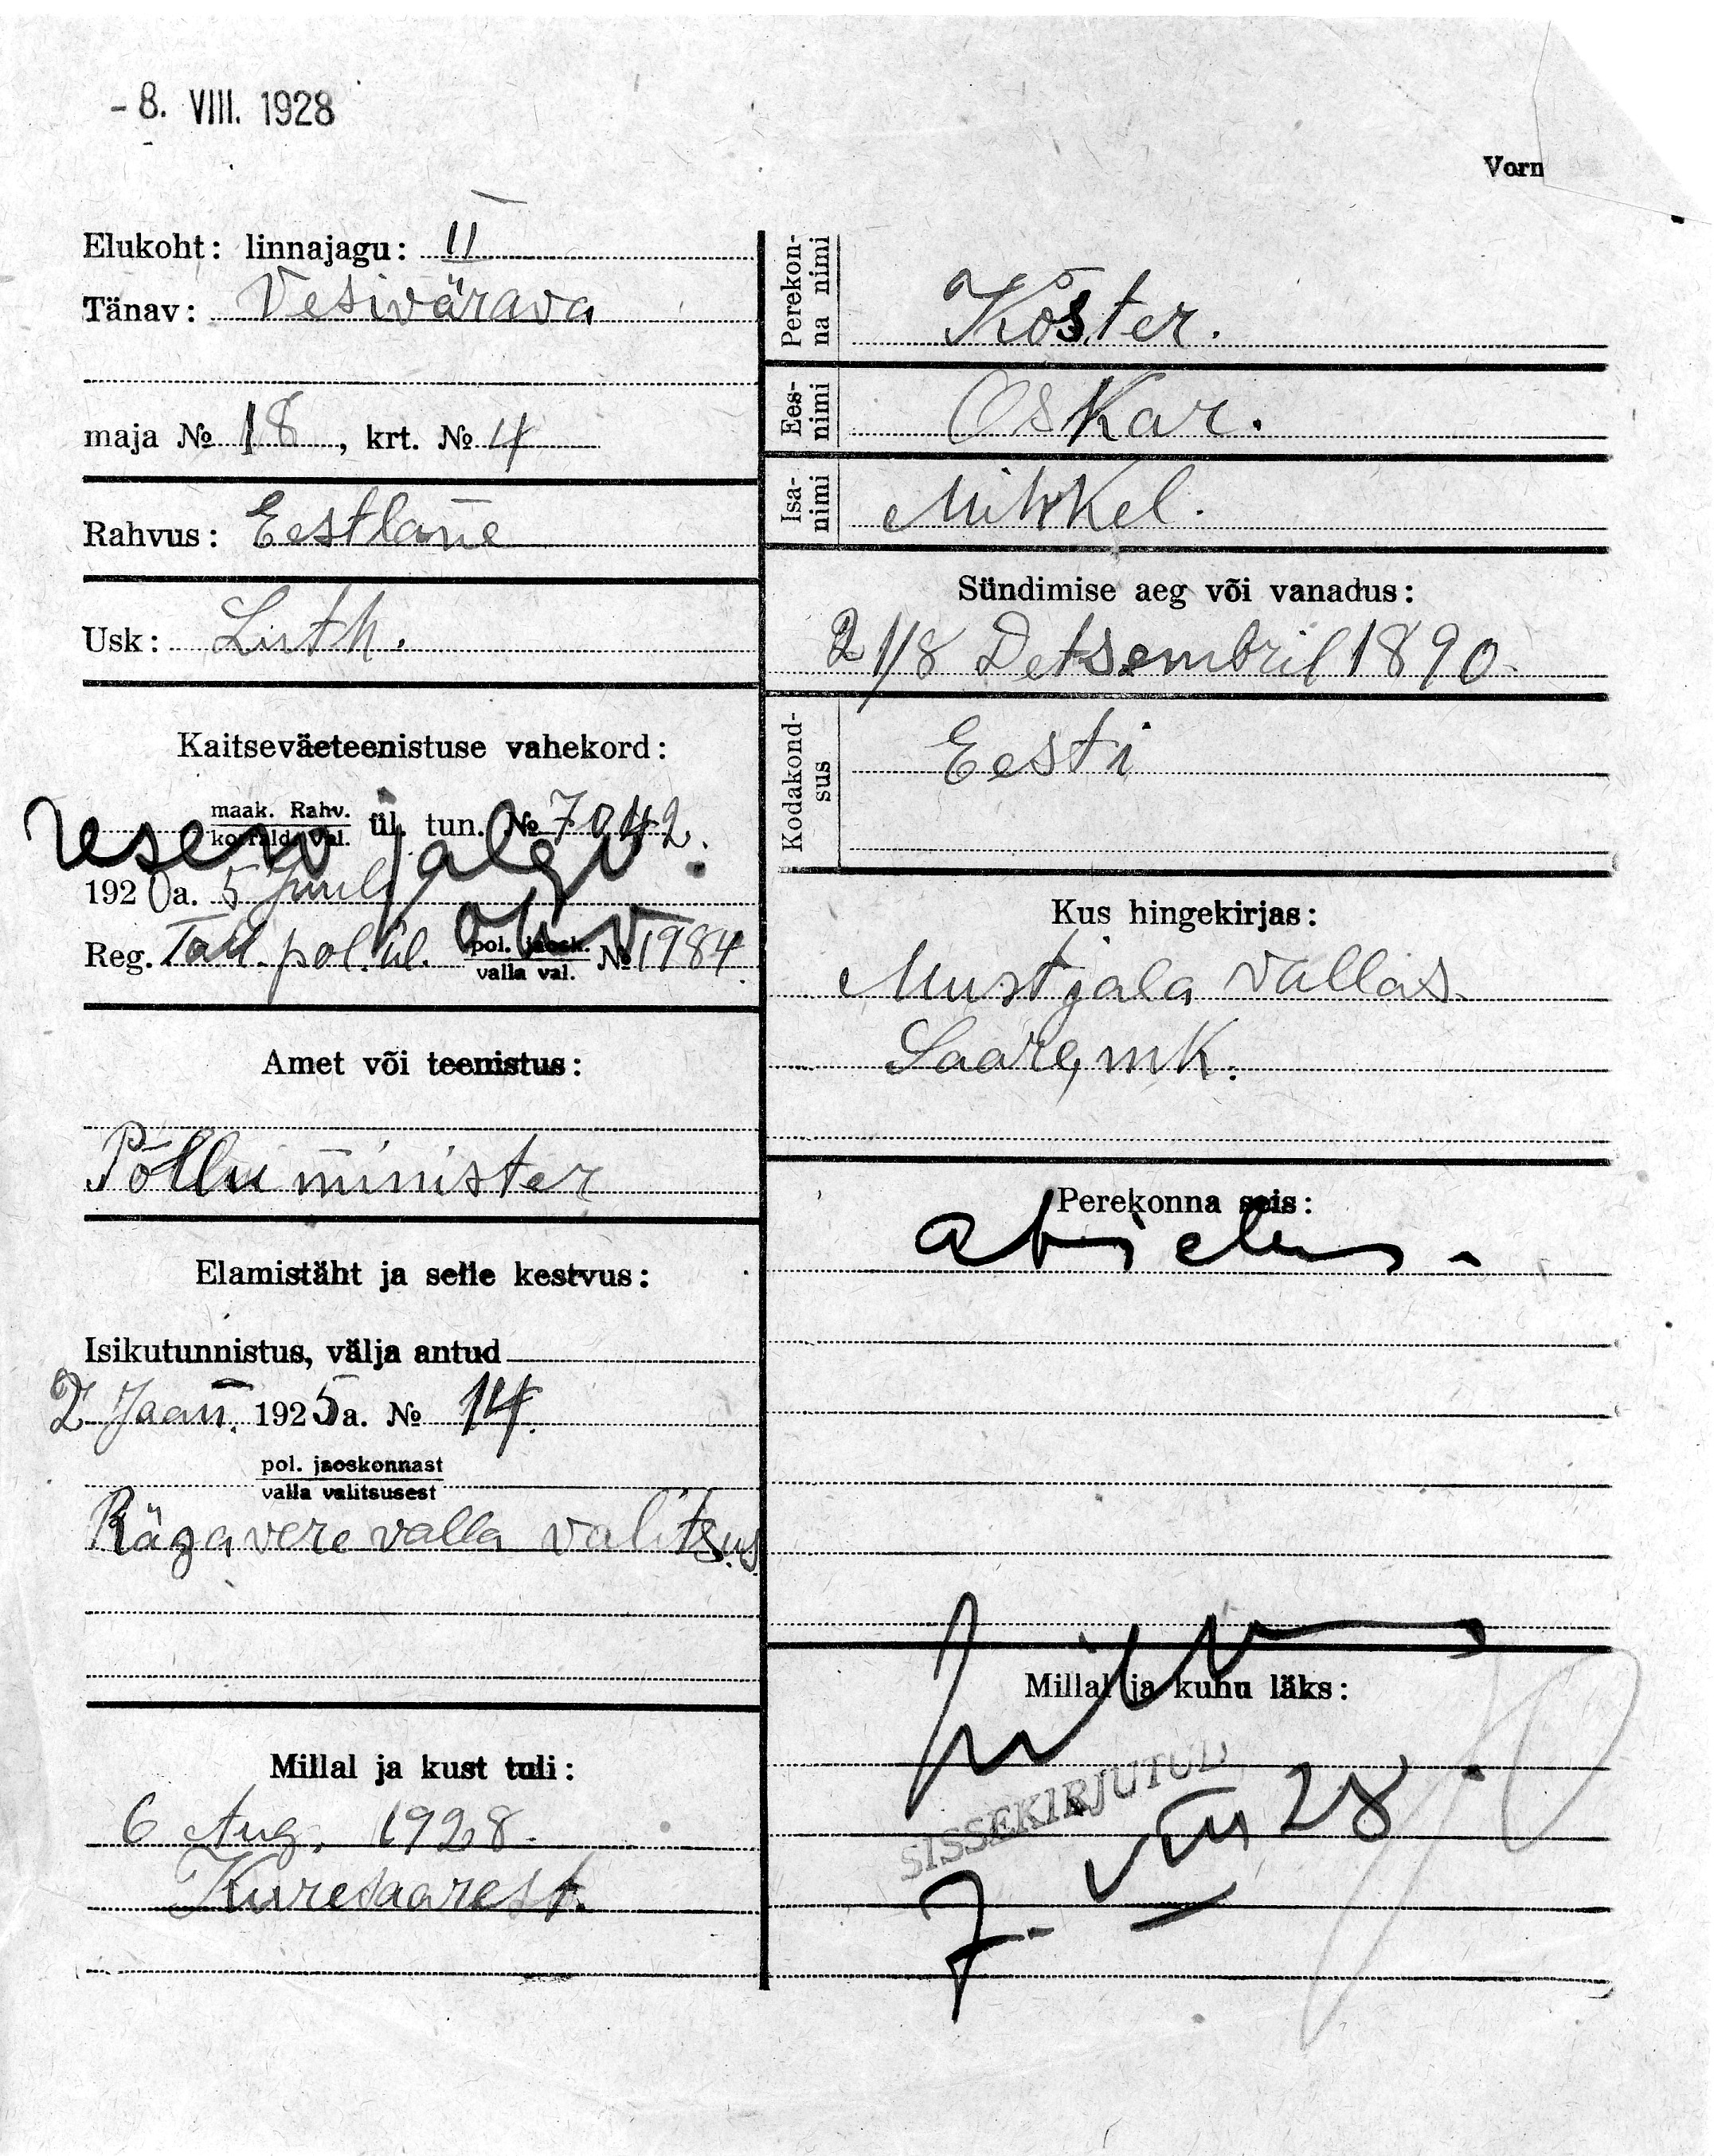 - 8. VIII. 1928
Vorn
Elukoht: linnajagu: II
Tänav: Vesivärava
maja № 18, krt. № 4
Rahvus: Eestlane
Usk: Luth.
Kaitseväeteenistuse vahekord:
reserv
maak. Rahv. ül. tun. № 7042.
korrald. Val.
1920 a. 5 Juuli
Reg. Tall. pol. ül. pol. jaosk. № 1984
valla val.
Amet või teenistus:
Põllu minister
Elamistäht ja selle kestvus:
Isikutunnistus, välja antud
2 Jaan. 1925 a. № 14.
pol. jaoskonnast
valla valitsusest
Rägavere valla valitsus
Millal ja kust tuli:
6 Aug. 1928.
Kuresaarest.
Perekon-
na nimi
Köster.
Ees-
nimi
Oskar.
Isa-
nimi
Mihkel.
Sündimise aeg või vanadus:
21/8 Detsembril 1890.
Kodakond-
sus
Eesti
Kus hingekirjas:
Mustjala vallas
Saare, mk.
Perekonna seis:
abielus.
Millal ja kuhu läks:
SISSEKIRJUTUD
7. VIII 28